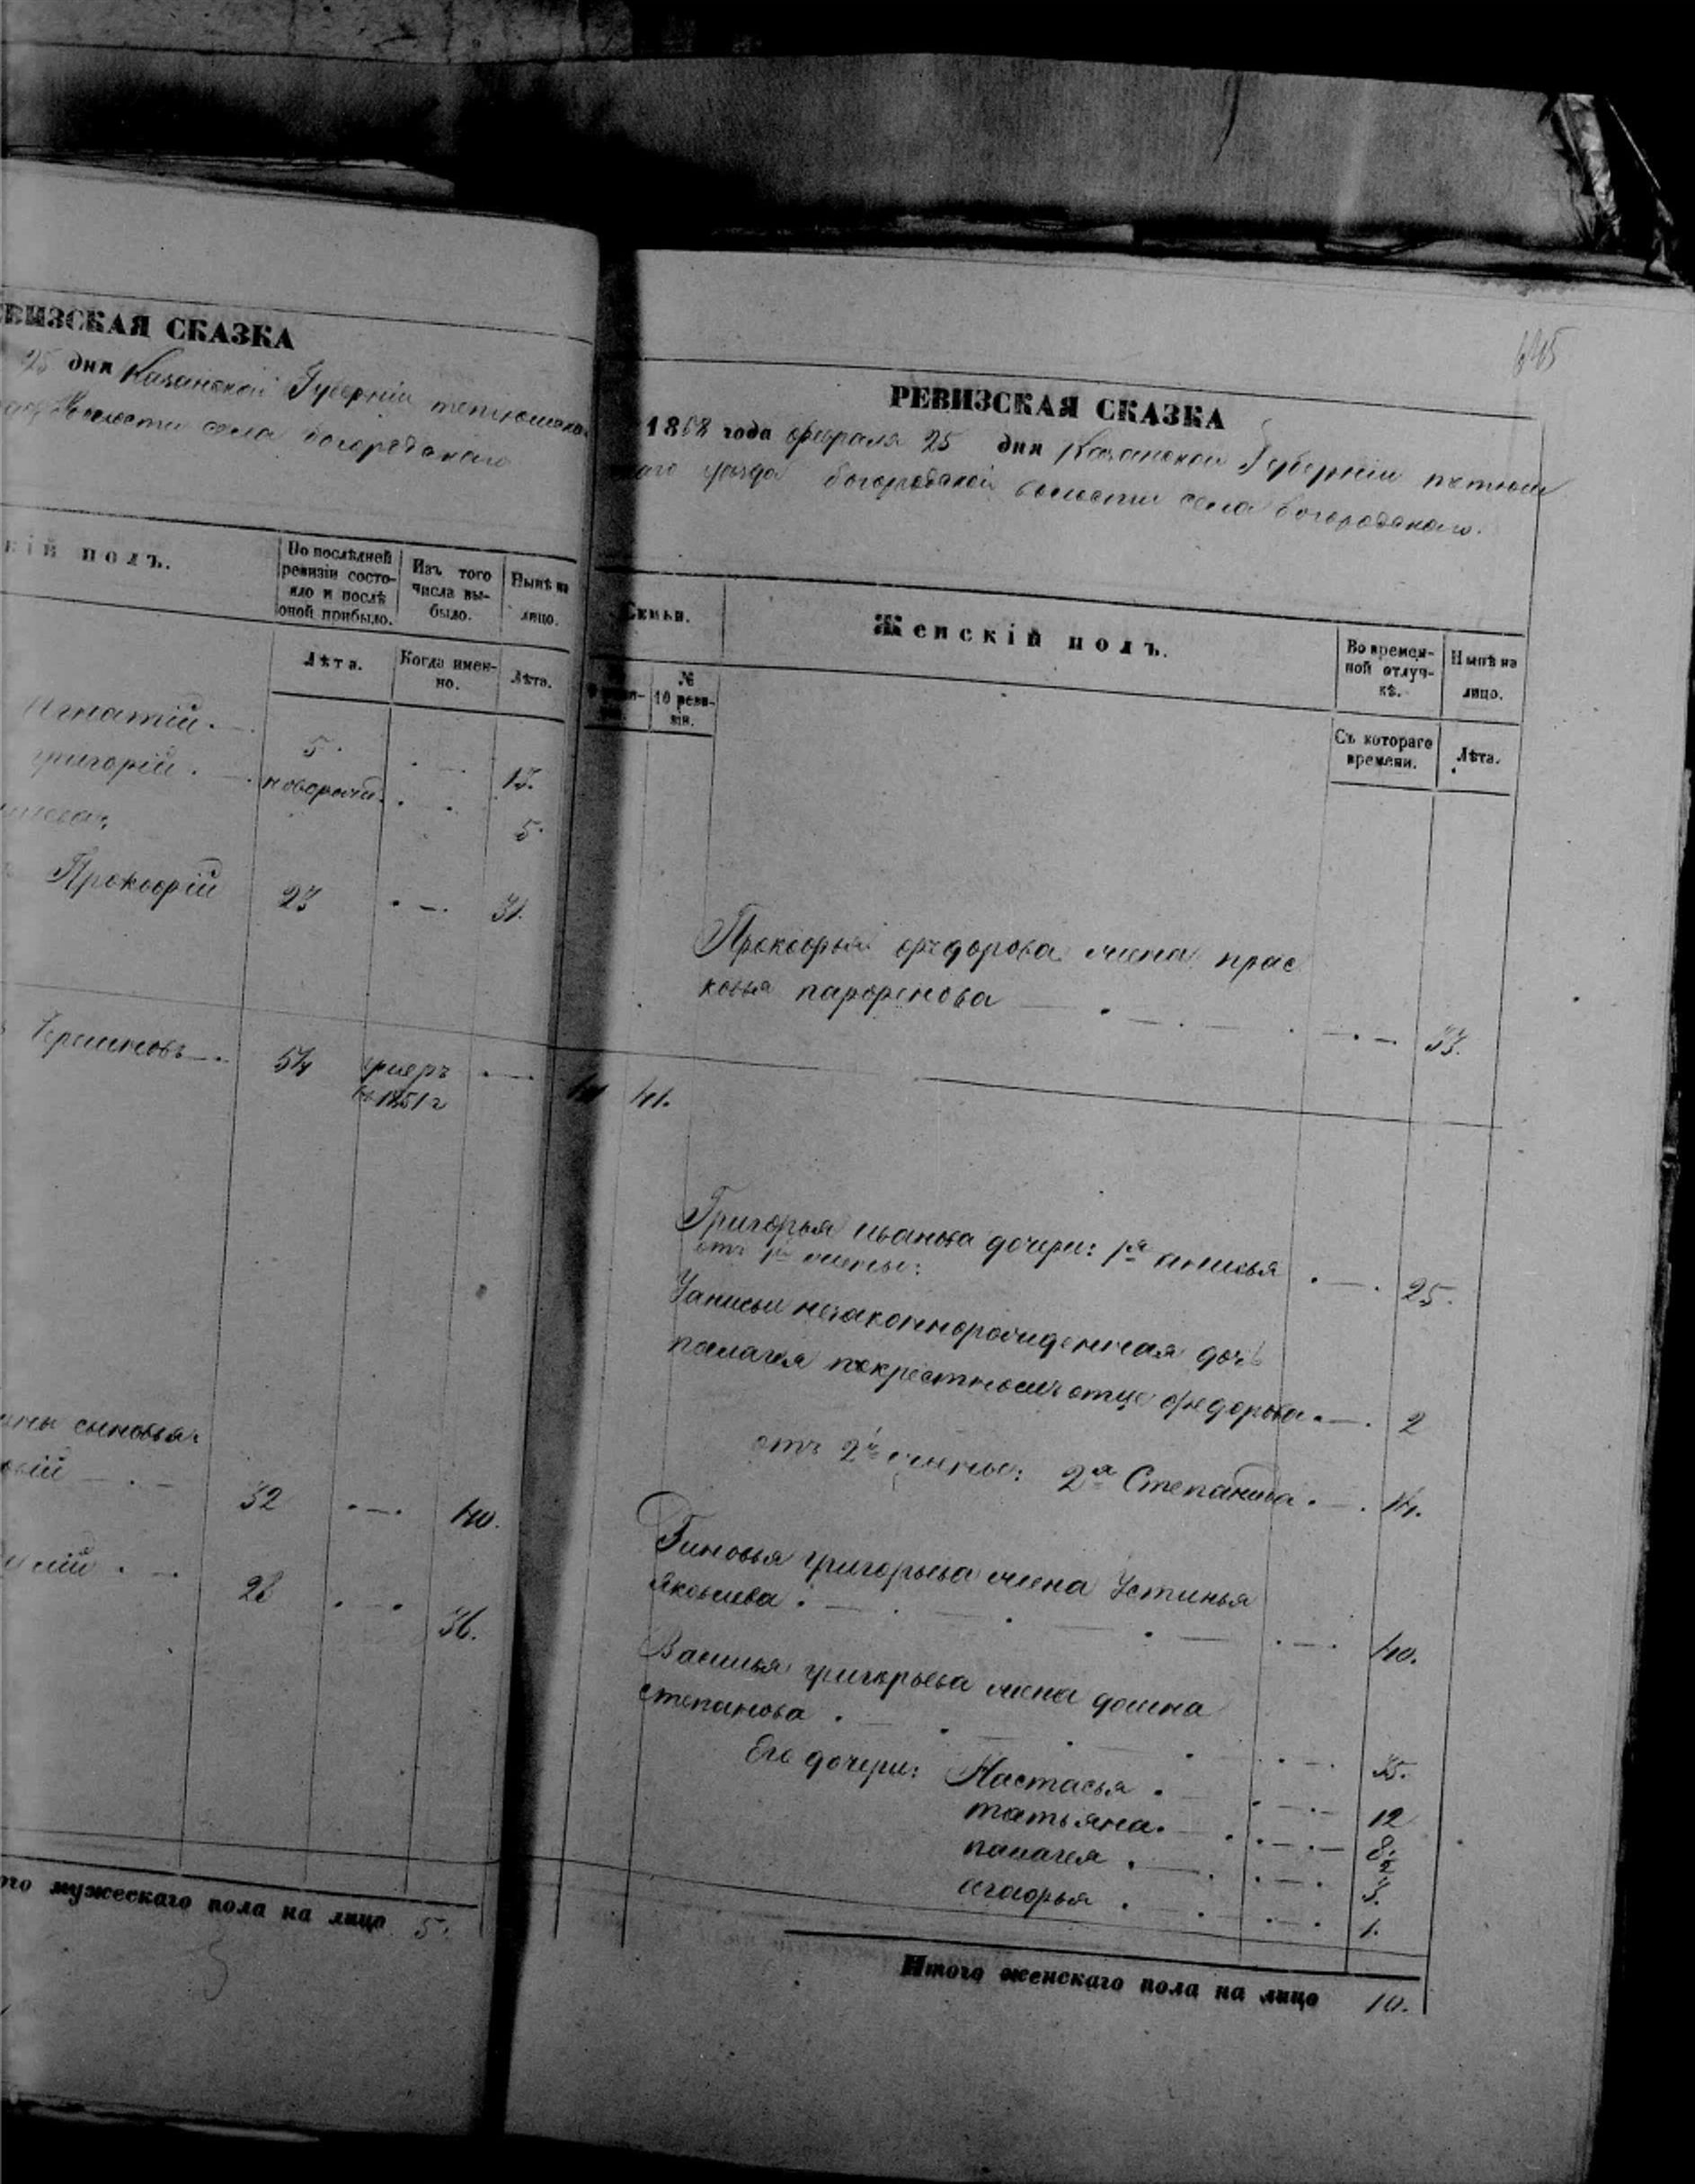 РЕВИЗСКАЯ СКАЗКА
25 дня Казанской Губернiи тетюшска
Волости села богородскаго
кiй полъ.
По послѣдней ревизiи состо-
яло и послѣ
оной прибыло.
Изъ того
числа вы-
было.
Нынѣ на
лицо.
Лѣта.
Когда имен-
но.
Лѣта.
Игнатiй. 5. 13.
григорiй. новорожд. 5.
Прокофiй 23 31.
Гереминовъ 54 умеръ
въ 1851 г
сыновья:
32 40.
28 36.
го мужескаго пола на лицо 5.
645
РЕВИЗСКАЯ СКАЗКА
1858 года февраля 25 дня Казанской Губернiи тетюш
скаго уѣзда богородской волости села богородскаго.
Семьи.
Женскiй полъ.
Во времен-
ной отлуч-
кѣ.
Нынѣ на
лицо.
№
10 реви-
зiи.
Съ котораго
времени.
Лѣта.
Прокофья федорова жена прас
ковья парфенова 33.
41.
Григорья иванова дочери: 1я анисья 25.
отъ 1й жены:
Уанисьи незаконнорожденная дочь
палагея покрестномъ отце федорова 2
отъ 2й жены: 2я Степанида 14.
Зиновья григорьева жена Устинья
Яковлева 40.
Василья григорьева жена домна
степанова 35.
Его дочери: Настасья 12
татьяна. 8.
палагея 3.
агафья 1.
Итого женскаго пола на лицо 10.